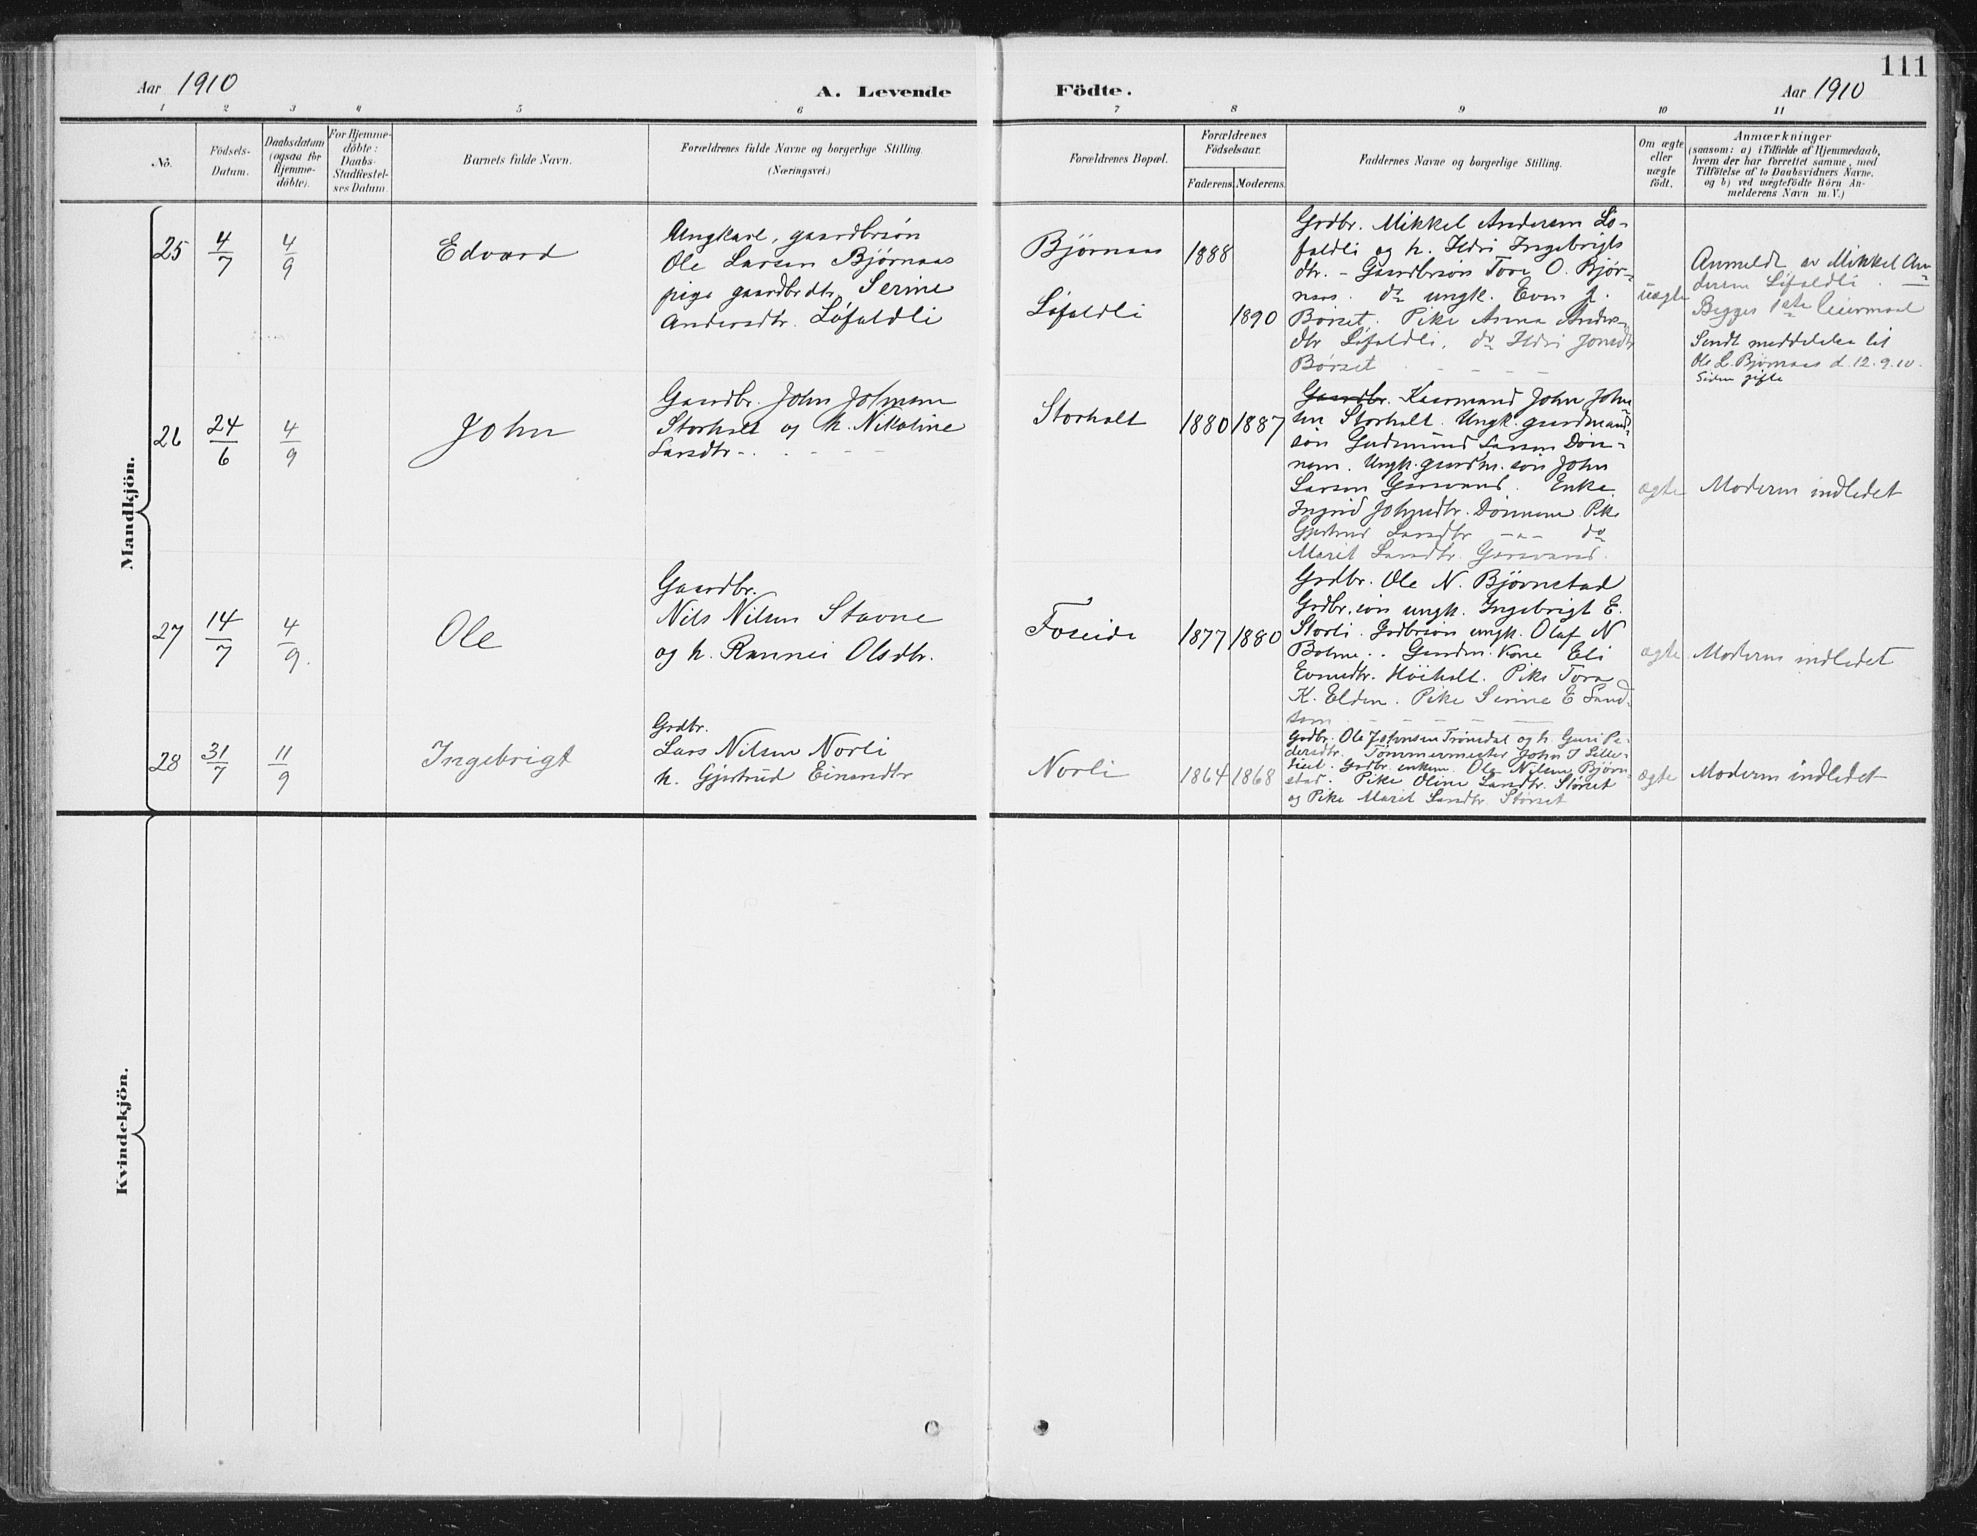 111
Aar 1910
A. Levende Födte.
Aar 1910
1 2 3 4 5 6 7 8 9 10 11
No.
Födsels-
Datum.
Daabsdatum
(ogsaa för
Hjemme-
döbte).
For Hjemme-
döbte:
Daabs-
Stadfæstel-
ses Datum.
Barnets fulde Navn.
Forældrenes fulde Navne og borgerlige Stilling.
(Næringsvei.)
Forældrenes Bopæl.
Forældrenes
Födselsaar.
Faderens. Moderens.
Faddernes Navne og borgerlige Stilling.
Om ægte
eller
uægte
födt.
Anmærkninger
(saasom: a) i Tilfælde af Hjemmedaab,
hvem der har forrettet samme, med
Tilföielse af to Daabsvidners Navne,
og b) ved uægtefödte Börn An-
melderens Navn m. V.)
Mandkjön.
25
4/7
4/9
Edvard
Ungkarl, gaardbrsøn
Ole Larsen Bjørnaas
pige gaardbrdtr. Serine
Andersdtr. Løfaldli
Bjørnaas
Løfaldli
1888
1890
Grdbr. Mikkel Andersen Lø-
faldli og h. Ildri Ingebrigts
dtr. - Gaardbrsøn Tore O. Bjør-
naas. do ungk. Even J.
Børset. Pike Anna Anders-
dtr Løfaldli. do Ildri Jonsdtr
Børset
uægte
Anmeldt av Mikkel An-
dersen Løfaldli.
Begges 1ste leiermaal
Sendt meddelelse til
Ole L. Bjørnaas d. 12.9.10.
Siden gifte
26
24/6
4/9
John
Gaardbr. John Johnsen
Storholt og h. Nikoline
Larsdtr.
Storholt
1880 1887
Gaardbr. Kaarmand John John
sen Storholt. Ungk. gaardmands
søn Gudmund Larsen Døn-
nem. Ungk. gaardm. søn John
Larsen Garsvand. Enke
Ingrid Johnsdtr. Dønnem. Pike
Gjertrud Larsdtr -"- do
Marit Larsdtr. Garsvand.
ægte
Moderen indledet
27
14/7
4/9.
Ole
Gaardbr.
Nils Nilsen Stavne
og h. Rannei Olsdtr.
Foseide
1877 1880
Grdbr. Ole N. Bjørnstad
Grdbr. søn ungk. Ingebrigt E.
Storli. Grdbrsøn ungk. Olaf N
Bolme. Gaardm. Kone Eli
Evensdtr. Høiholt. Pike Tora
K. Elden. Pike Serine E Sand-
ægte
Moderen indledet
28
31/7
11/9
Ingebrigt
Grdbr.
Lars Nilsen Norli
h. Gjertrud Einarsdtr
Norli
1864 1868
Grdbr. Ole Johnsen Trønsdal og h. Guri Pe-
dersdtr. Tømmermester John I Lille-
Grdbr. enkem. Ole Nilsen Bjørn-
stad. Pike Oline Larsdtr. Størset
og Pike Marit Larsdtr. Størset
ægte
Moderen indledet
Kvindekjön.